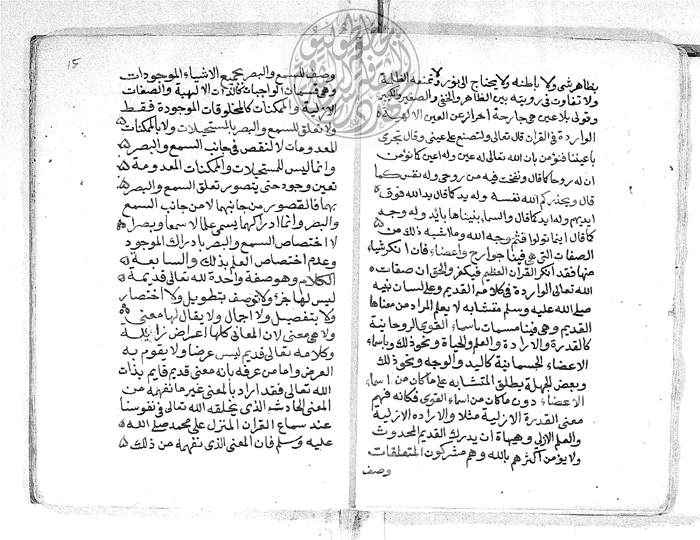 بظاهر شئ ولا باطنه ولا يحتاج الى نور ولا تمنعه الظلمة
ولا تفاوت في رؤيته بين الظاهر والخفى والصغير والكبير
وقولى بلا عين هي جارحة احتراز عن العين الالهية
الواردة في القران قال تعالى ولتصنع على عينى وقال تجرى
باعيننا فنؤمن بان الله تعالى له عين وله اعين كما نؤمن
ان له روحا كما قال ونفخت فيه من روحى وله نفس كما
قال ويحذركم الله نفسه وله يد كما قال يد الله فوق
ايديهم وله ايد كما قال والسما بنيناها بايد وله وجه
كما قال اينما تولوا فثم وجه الله وما اشبه ذلك من
الصفات التى هي فينا جوارح واعضاء فان انكر شيا
منها فقد انكر القران العظيم فيكفر والحق ان صفات
الله تعالى الواردة في كلامه القديم وعلى لسان نبيه
صلى الله عليه وسلم متشابه لا يعلم المراد من معناها
القديم وهي فينا مسمات باسماء القوى الروحانية
كالقدرة والارادة والعلم والحياة ونحو ذلك وباسماء
الاعضاء الجسمانية كاليد والوجه ونحو ذلك
وبعض الجهلة يطلق المتشابه على ما كان من اسماء
الاعضاء دون ما كان من اسماء القوى فكانه فهم
معنى القدرة الازلية مثلا والاراده الازلية
والعلم الازلى وهيهات ان يدرك القديم المحدوث
ولا يؤمن اكثرهم بالله وهم مشركون المتعلقات
وصف
15
وصف للسمع والبصر بجميع الاشياء الموجودات
وهي قسمان الواجبات كالذات الالهية والصفات
الازلية والممكنات كالمخلوقات الموجودة فقط
ولا تعلق للسمع والبصر بالمستحيلات ولا بالممكنات
المعدومات لا لنقص في جانب السمع والبصر
وانما ليس للمستحيلات والممكنات المعدومة
تعين وجود حتى يتصور تعلق السمع والبصر
بهما فالقصور من جانبهما لا من جانب السمع
والبصر وانما ادراكهما يسمى علما لا سمعا وبصرا
لاختصاص السمع والبصر بادراك الموجود
وعدم اختصاص العلم بذلك والسابعة
الكلام وهو صفة واحدة لله تعالى قديمة
ليس لها جزؤ ولا توصف بتطويل ولا اختصار
ولا بتفصيل ولا اجمال ولا يقال لها معنى
ولا هي معنى لان المعانى كلها اعراض زايلة
وكلامه تعالى قديم ليس عرضا ولا يقوم به
العرض واما من عرفه بانه معنى قديم قايم بذات
الله تعالى فقد اراد بالمعنى غير ما نفهمه من
المعنى الحادث الذى يخلقه الله تعالى في نفوسنا
عند سماع القران المنزل على محمد صلى الله
عليه وسلم فان المعنى الذى نفهمه من ذلك